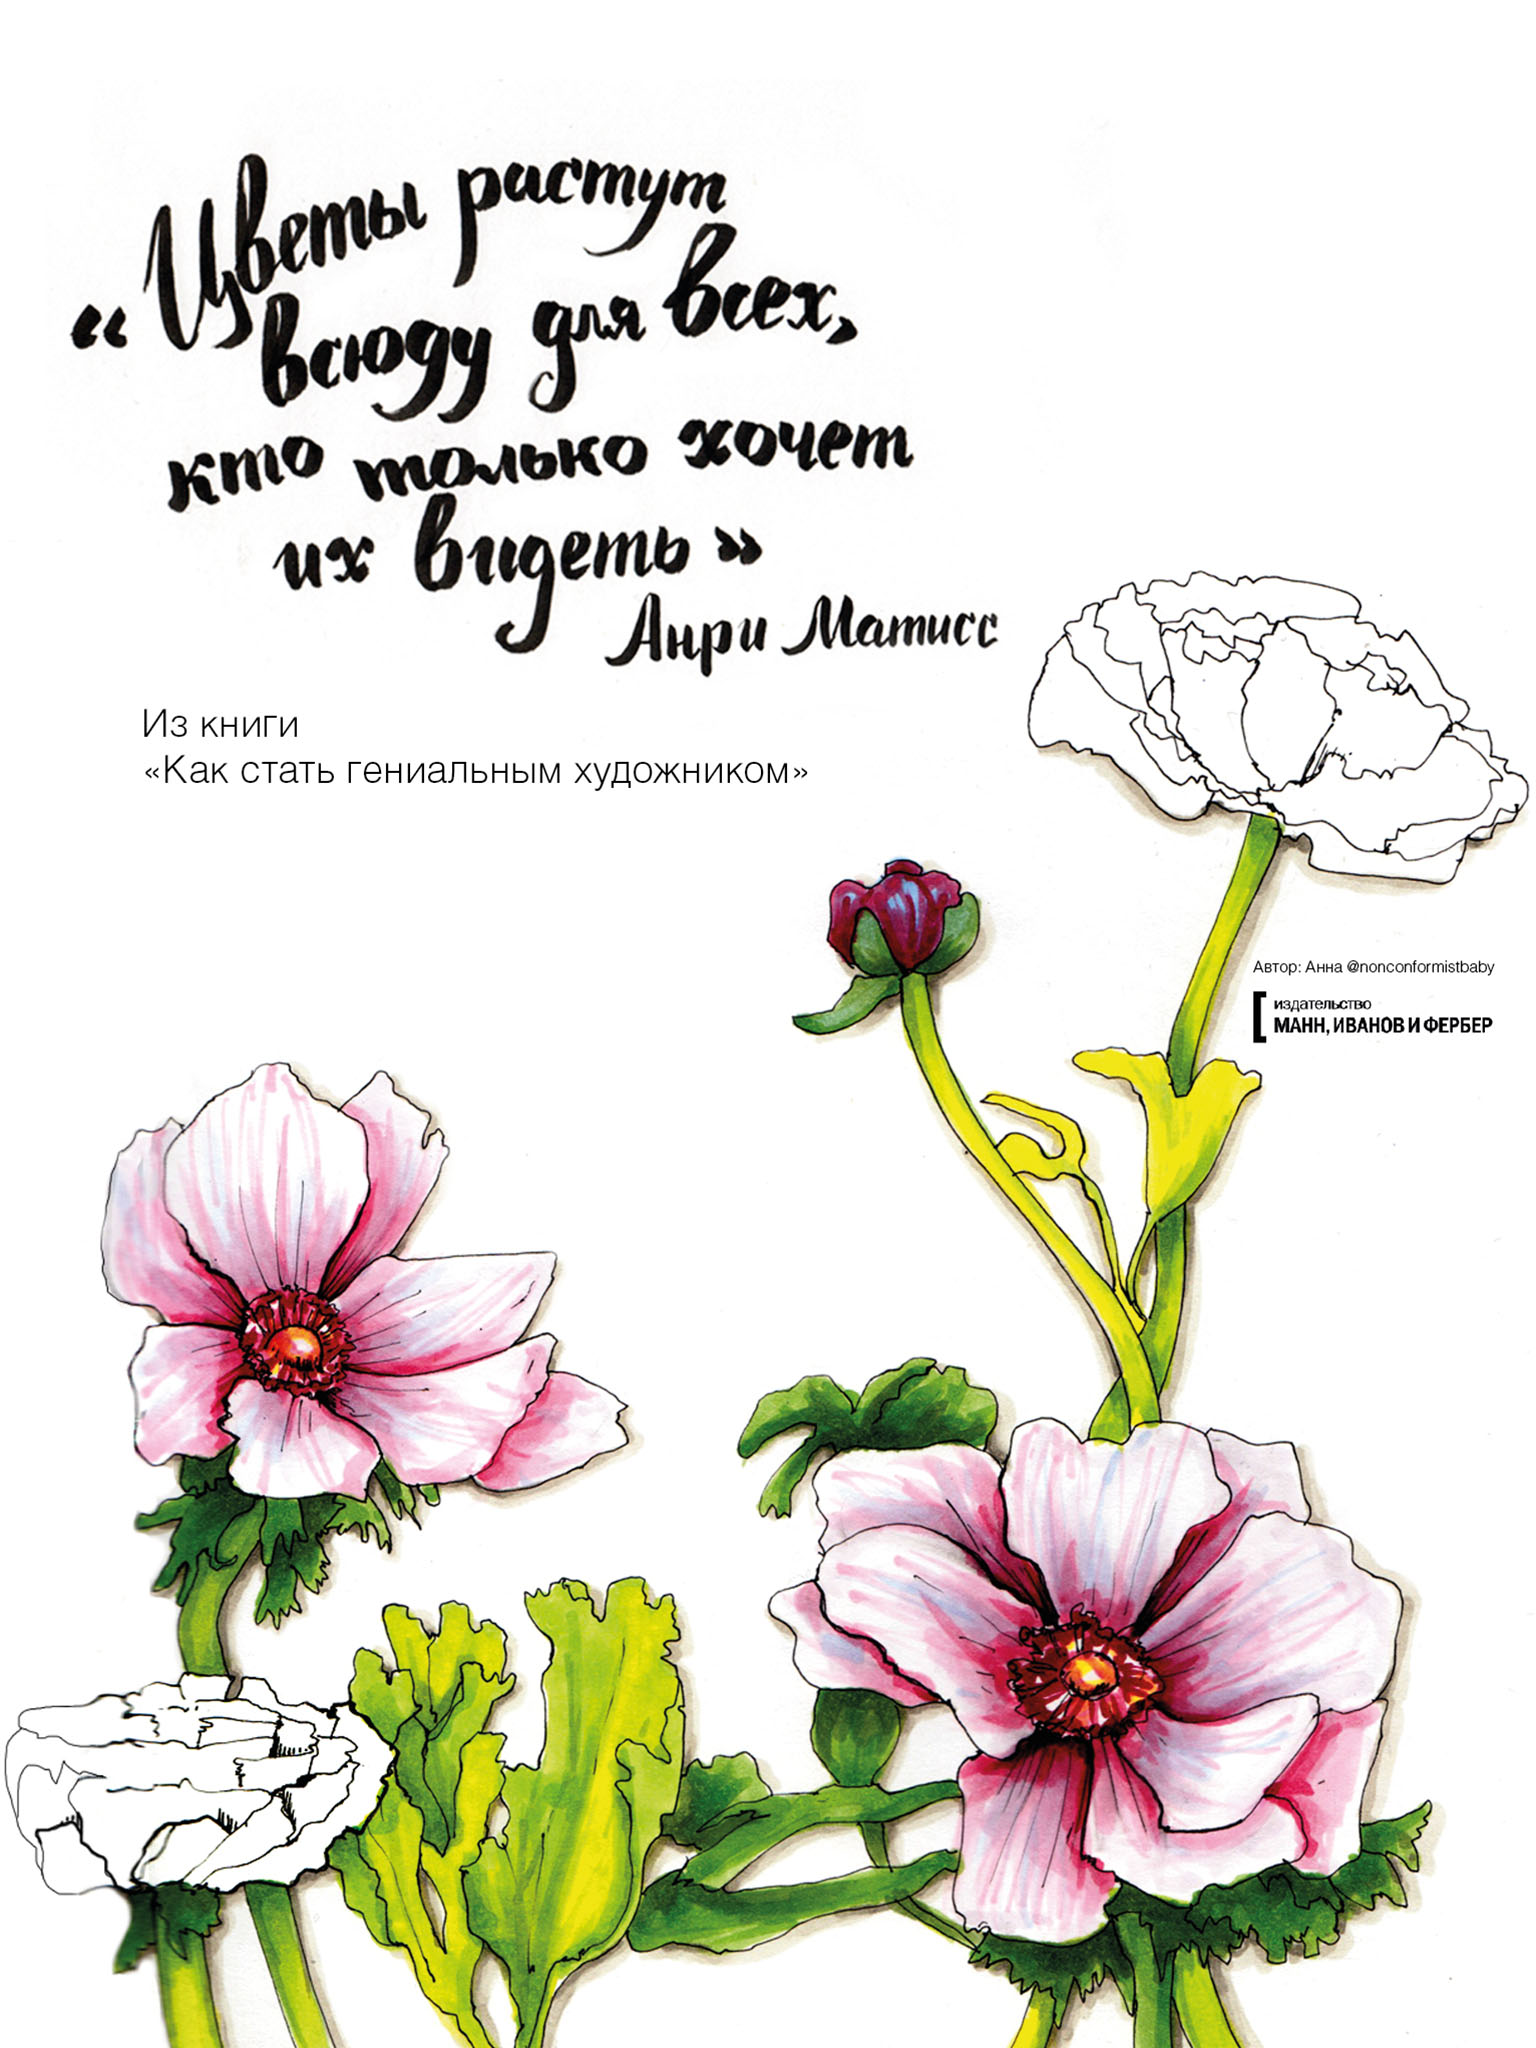 «Цветы растут
всюду для всех,
кто только хочет
их видеть»
Анри Матисс
Из книги
«Как стать гениальным художником»
Автор: Анна @nonconformistbaby
издательство
МАНН, ИВАНОВ И ФЕРБЕР